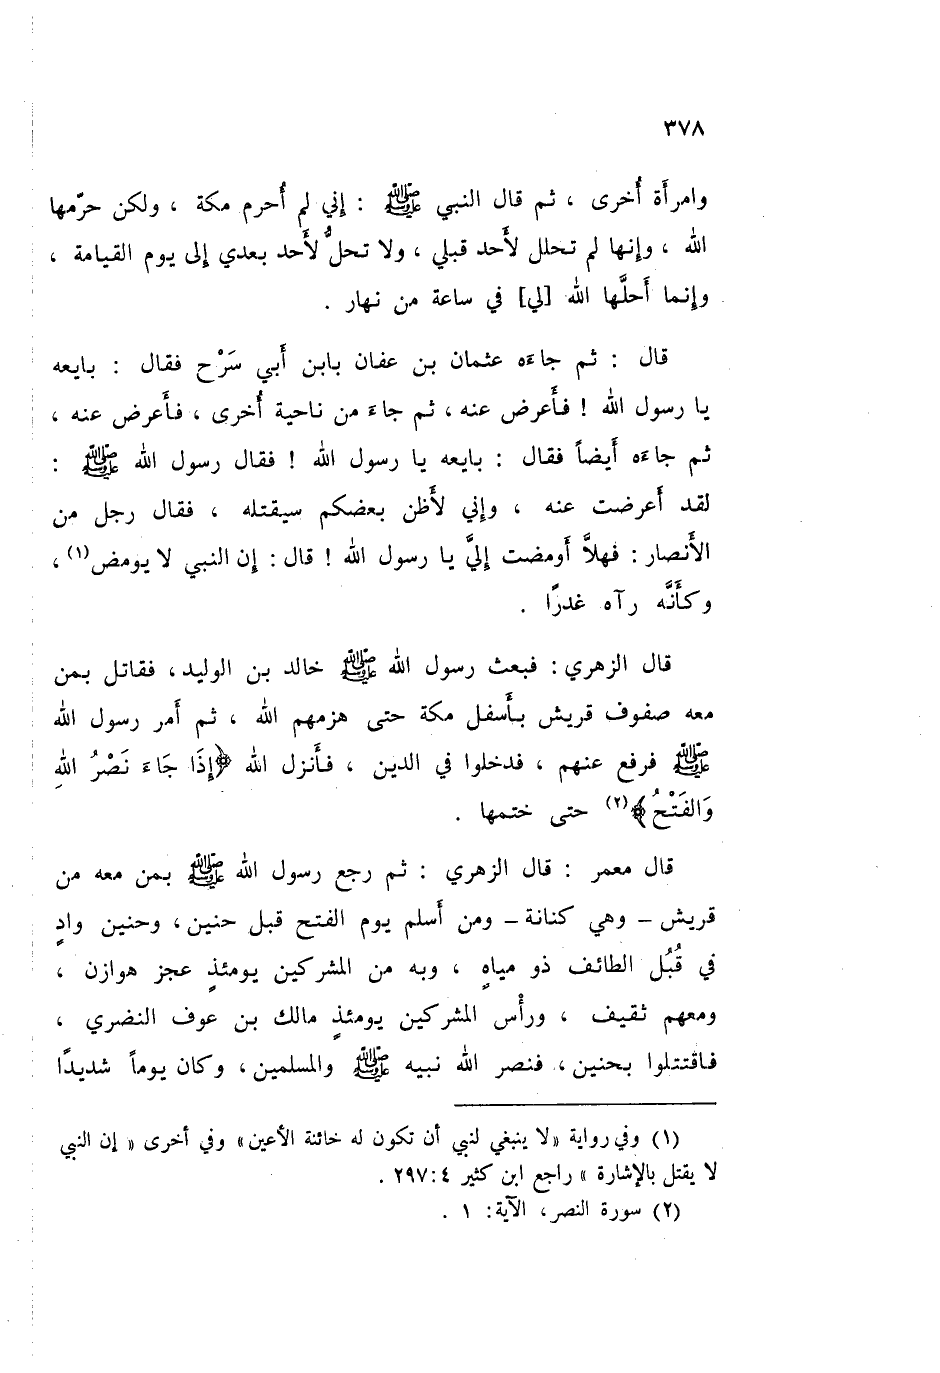 ٣٧٨
وامرأة أُخرى ، ثم قال النبي ﷺ : إني لم أُحرم مكة ، ولكن حرّمها
الله ، وإنها لم تحلل لأَحد قبلي ، ولا تحلُّ لأَحد بعدي إلى يوم القيامة ،
وإنما أَحلَّها الله [لي] في ساعة من نهار .
قال : ثم جاءه عثمان بن عفان بابن أَبي سَرْح فقال : بايعه
يا رسول الله ! فأَعرض عنه ، ثم جاءَ من ناحية أُخرى ، فأَعرض عنه ،
ثم جاءه أَيضاً فقال : بايعه يا رسول الله ! فقال رسول الله ﷺ :
لقد أَعرضت عنه ، وإني لأَظن بعضكم سيقتله ، فقال رجل من
الأَنصار : فهلاَّ أَومضت إليَّ يا رسول الله ! قال : إن النبي لا يومض(١) ،
وكأَنَّه رآه غدرًا .
قال الزهري : فبعث رسول الله ﷺ خالد بن الوليد ، فقاتل بمن
معه صفوف قريش بأَسفل مكة حتى هزمهم الله ، ثم أَمر رسول الله
ﷺ فرفع عنهم ، فدخلوا في الدين ، فأَنزل الله ﴿إِذَا جَاءَ نَصْرُ اللهِ
وَالفَتْحُ﴾(٢) حتى ختمها .
قال معمر : قال الزهري : ثم رجع رسول الله ﷺ بمن معه من
قريش – وهي كنانة – ومن أَسلم يوم الفتح قبل حنين ، وحنين وادٍ
في قُبُل الطائف ذو مياهٍ ، وبه من المشركين يومئذٍ عجز هوازن ،
ومعهم ثقيف ، ورأْس المشركين يومئذٍ مالك بن عوف النضري ،
فاقتتلوا بحنين ، فنصر الله نبيه ﷺ والمسلمين ، وكان يوماً شديدًا
(١) وفي رواية «لا ينبغي لنبي أن تكون له خائنة الأعين» وفي أخرى « إن النبي
لا يقتل بالإشارة » راجع ابن كثير ٤:٢٩٧ .
(٢) سورة النصر، الآية: ١ .